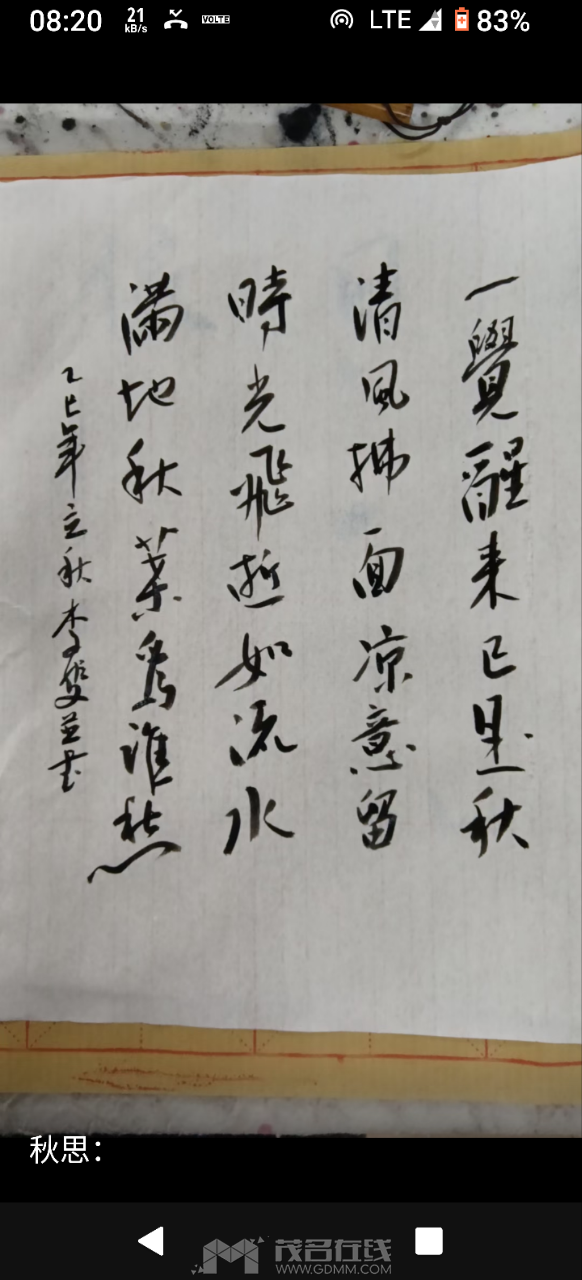 08:20
21
kB/s
VOLTE
LTE
83%
一覺醒来已是秋
清風拂面凉意留
時光飛逝如流水
滿地秋葉為誰愁
乙巳年立秋李雙並书
秋思：
茂名在线
WWW.GDMM.COM